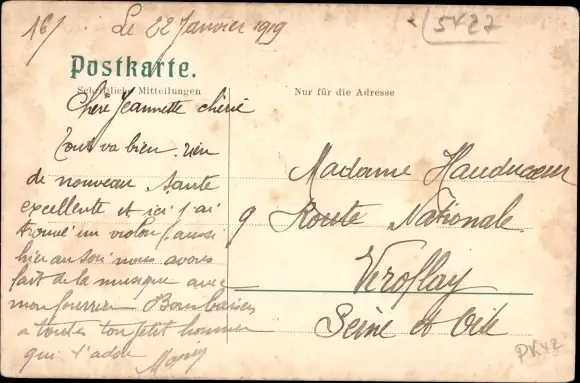 16/ Le 22 Janvier 1919
5422
Postkarte.
Schriftliche Mitteilungen
Nur für die Adresse
Chère Jeannette chérie
Tout va bien. rien
de nouveau Santé
excellente et ici j'ai
trouvé un violon aussi
hier au soir nous avons
fait de la musique avec
mon fourrier Bons baisers
a toutes ton petit homme
qui t'adore
Madame Hauducoeur
9 Route Nationale
Viroflay
Seine et Oise